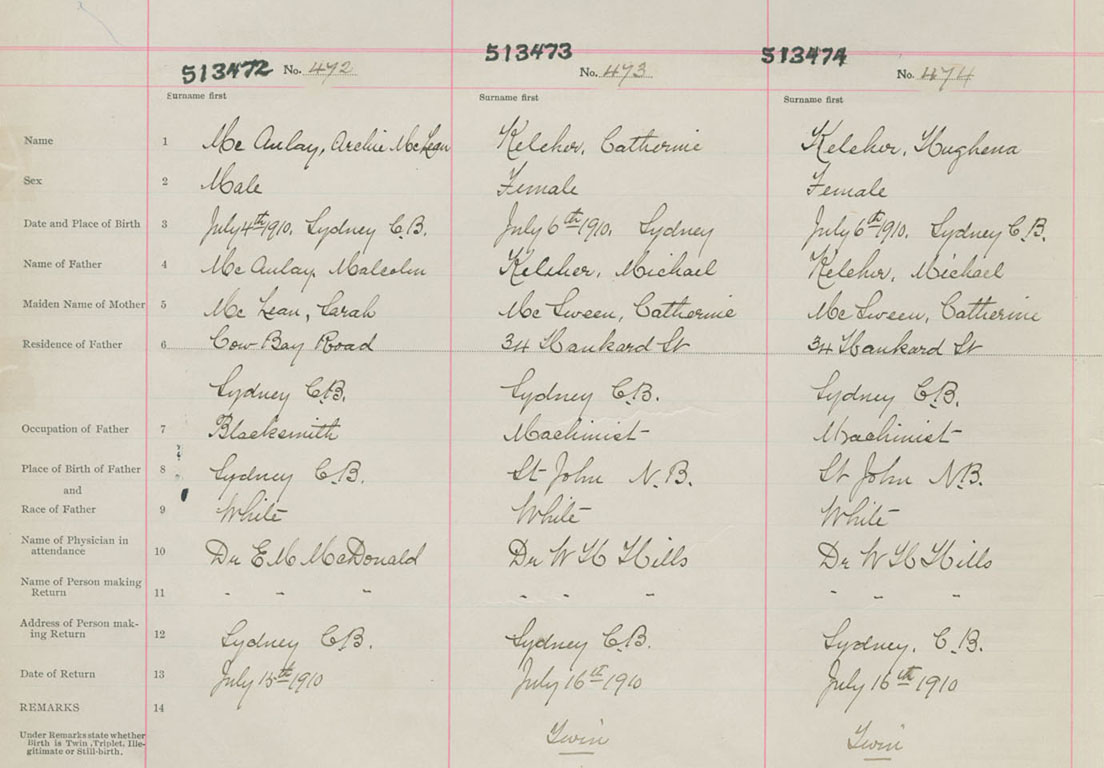 513472 No. 472 513473 No. 473 513474 No. 474
Surname first Surname first Surname first
Name 1 Mc Aulay, Archie McLean Kelcher, Catherine Kelcher, Hughena
Sex 2 Male Female Female
Date and Place of Birth 3 July 4th 1910. Sydney C.B. July 6th 1910. Sydney July 6th 1910. Sydney C.B.
Name of Father 4 Mc Aulay, Malcolm Kelcher, Michael Kelcher, Michael
Maiden Name of Mother 5 Mc Lean, Sarah Mc Sween, Catherine Mc Sween, Catherine
Residence of Father 6 Cow Bay Road 34 Hankard St 34 Hankard St
Sydney C.B. Sydney C.B. Sydney C.B.
Occupation of Father 7 Blacksmith Machinist Machinist
Place of Birth of Father 8 Sydney C.B. St John N.B. St John N.B.
and
Race of Father 9 White White White
Name of Physician in
attendance 10 Dr E M McDonald Dr W H Hills Dr W H Hills
Name of Person making
Return 11 - - " - - " - - "
Address of Person mak-
ing Return 12 Sydney C.B. Sydney C.B. Sydney, C.B.
Date of Return 13 July 15th 1910 July 16th 1910 July 16th 1910
REMARKS 14
Under Remarks state whether
Birth is Twin, Triplet, Ille-
gitimate or Still-birth.
Twin Twin